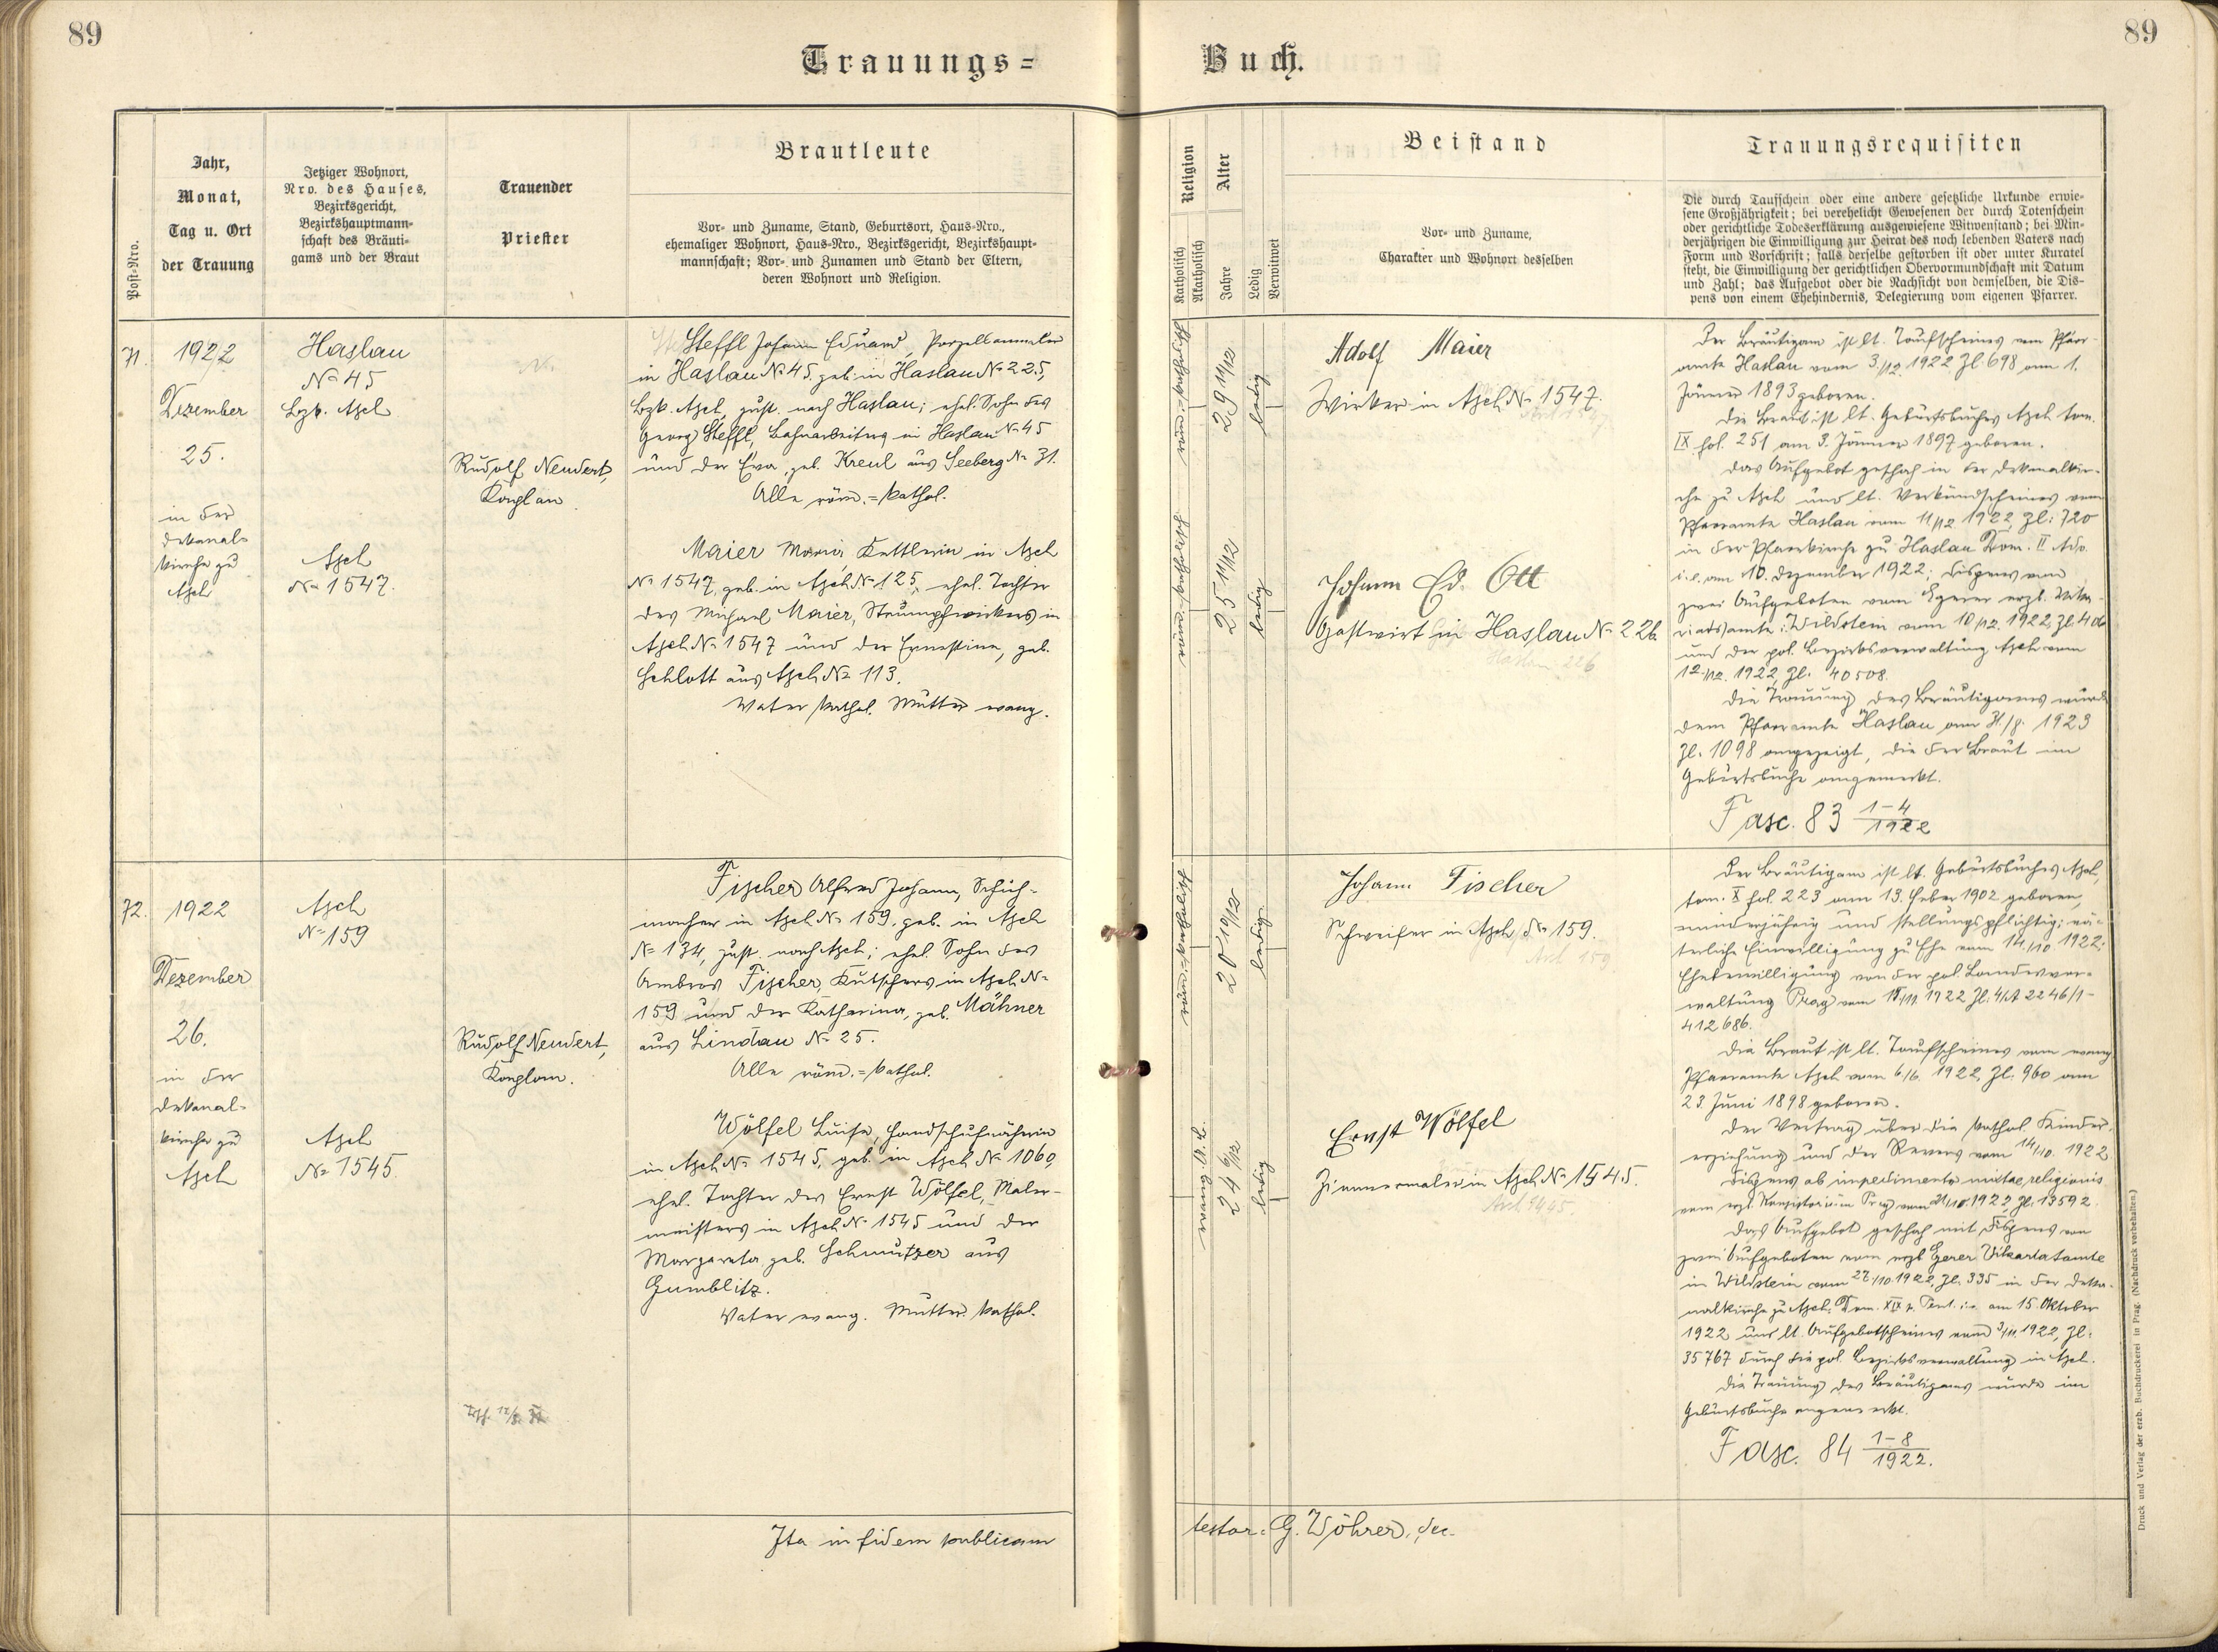 89
89
Trauungs=
Buch.
Post-Nro.
Jahr,
Monat,
Tag u. Ort
der Trauung
Jetziger Wohnort,
Nro. des Hauses,
Bezirksgericht,
Bezirkshauptmann-
schaft des Bräuti-
gams und der Braut
Trauender
Priester
Brautleute
Vor- und Zuname, Stand, Geburtsort, Haus-Nro.,
ehemaliger Wohnort, Haus-Nro., Bezirksgericht, Bezirkshaupt-
mannschaft; Vor- und Zunamen und Stand der Eltern,
deren Wohnort und Religion.
Religion
Katholisch
Akatholisch
Alter
Jahre
Ledig
Verwitwet
Beistand
Vor- und Zuname,
Charakter und Wohnort desselben
Trauungsrequisiten
Die durch Taufschein oder eine andere gesetzliche Urkunde erwie-
sene Großjährigkeit; bei verehelicht Gewesenen der durch Totenschein
oder gerichtliche Todeserklärung ausgewiesene Witwenstand; bei Min-
derjährigen die Einwilligung zur Heirat des noch lebenden Vaters nach
Form und Vorschrift; falls derselbe gestorben ist oder unter Kuratel
steht, die Einwilligung der gerichtlichen Obervormundschaft mit Datum
und Zahl; das Aufgebot oder die Nachsicht von demselben, die Dis-
pens von einem Ehehindernis, Delegierung vom eigenen Pfarrer.
71.
1922
Dezember
25.
in der
Dekanal-
kirche zu
Asch
Haslau
No 45
Bzk. Asch
Asch
No 1547.
Rudolf Neudert,
Kaplan
Steffl Johann Eduard, Porzellanmaler
in Haslau No 45. geb. in Haslau No 225,
Bzk. Asch, zust. nach Haslau; ehel. Sohn des
Georg Steffl, Bahnarbeiters in Haslau No 45
und der Eva, geb. Kreul aus Seeberg No 31.
Alle röm.=kathol.
Maier Maria, Kettlerin in Asch
No 1547, geb. in Asch No 125, ehel. Tochter
des Michael Maier, Strumpfwirkers in
Asch No 1547 und der Ernestine, geb.
Schlott aus Asch No 113.
Vater kathol. Mutter evang.
röm=katholisch
29 11/12
ledig
röm=katholisch
25 11/12
ledig
Adolf Maier
Wirker in Asch No 1547.
Johann Ed. Ott
Gastwirt in Haslau No 226
Haslau 226
Der Bräutigam ist lt. Taufscheines vom Pfarr-
amte Haslau vom 3./12. 1922 Zl. 698 am 1.
Jänner 1893 geboren.
Die Braut ist lt. Geburtsbuches Asch tom.
IX fol. 251 am 3. Jänner 1897 geboren.
Das Aufgebot geschah in der Dekanalkir-
che zu Asch und lt. Verkündscheines vom
Pfarramte Haslau vom 11/12. 1922, Zl: 720
in der Pfarrkirche zu Haslau Dom. II Adv.
i. e. am 10. Dezember 1922; Dispens von
zwei Aufgeboten vom Egerer erzb. Vika-
riatsamte: Wildstein vom 10/12. 1922, Zl. 406
und der pol. Bezirksverwaltung Asch vom
12./12. 1922, Zl. 40508.
Die Trauung des Bräutigams wurde
dem Pfarramte Haslau am 1923
Zl. 1098 angezeigt, die der Braut im
Geburtsbuche angemerkt.
Fasc. 83 1-4/1922
72.
1922
Dezember
26.
in der
Dekanal-
kirche zu
Asch
Asch
No 159
Asch
No 1545.
Rudolf Neudert,
Kaplan.
Fischer Alfred Johann, Schuh-
macher in Asch No 159, geb. in Asch
No 134, zust. nach Asch; ehel. Sohn des
Ambros Fischer, Kutschers in Asch No
159 und der Katharina, geb. Mähner
aus Lindau No 25.
Alle röm.=kathol.
Wölfel Luise, Handschuhnäherin
in Asch No 1545, geb. in Asch No 1060,
ehel. Tochter des Ernst Wölfel, Maler-
meisters in Asch No 1545 und der
Margareta geb. Schmutzer aus
Gumblitz.
Vater evang. Mutter kathol.
röm=katholisch
20 10/12
ledig
evang. A. B.
24 6/12
ledig
Johann Fischer
Schweifer in Asch No 159.
Asch 159
Ernst Wölfel
Zimmermaler in Asch No 1545.
Der Bräutigam ist lt. Geburtsbuches Asch,
tom. X fol. 223 am 13. Feber 1902 geboren,
minderjährig und stellungspflichtig; vä-
terliche Einwilligung zu Ehe vom 14/10 1922;
Ehebewilligung von der pol. Landesver-
waltung Prag vom 1922 Zl. 2246/1-
412686.
Die Braut ist lt. Taufscheines vom evang.
Pfarramte Asch vom 6/6. 1922, Zl. 960 am
23. Juni 1898 geboren.
Der Vertrag über die kathol. Kinder-
erziehung und der Revers vom 14/10. 1922.
Dispens ab impedimento mixtae religionis
vom erzb. Konsistorium Prag vom 21/10. 1922, Zl. 13592.
Das Aufgebot geschah mit Dispens von
zwei Aufgeboten vom erzb. Egerer Vikariatsamte
in Wildstein vom 27./10. 1922, Zl. 335 in der Deka-
nalkirche zu Asch: Dom. XIX p. Pent. i. e. am 15. Oktober
1922 und lt. Aufgebotscheines vom 3/11. 1922, Zl.
35767 durch die pol. Bezirksverwaltung in Asch.
Die Trauung des Bräutigams wurde im
Geburtsbuche angemerkt.
Fasc. 84 1-8/1922.
Ita in fidem publicam
testor: G. Wöhrer, Dec.
Druck und Verlag der erzb. Buchdruckerei in Prag. (Nachdruck vorbehalten.)